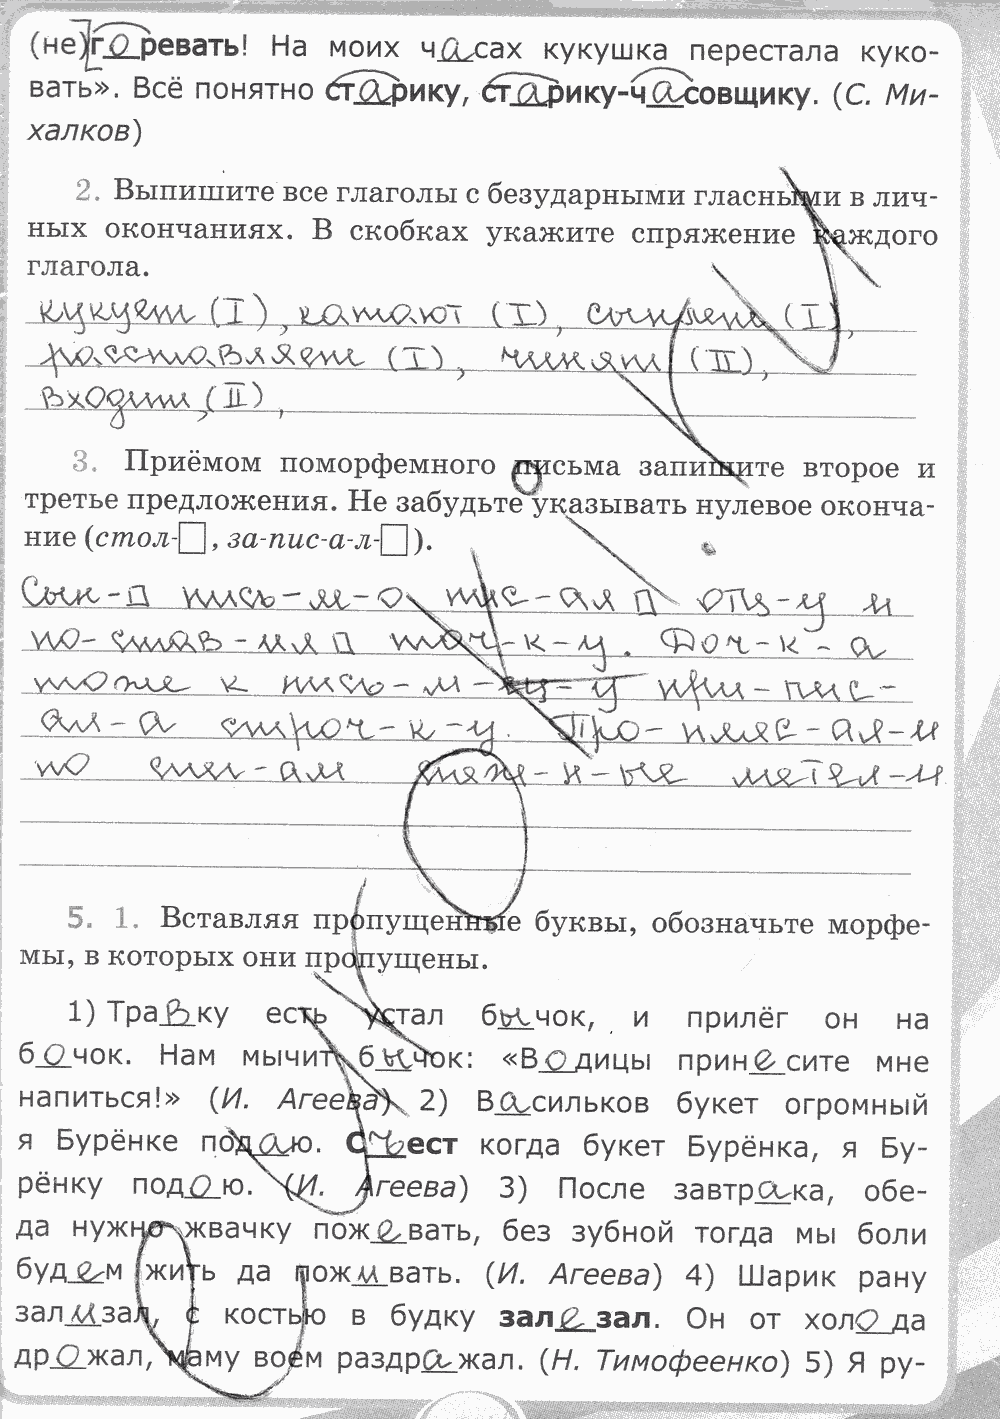 (не)горевать! На моих часах кукушка перестала куко-
вать». Всё понятно старику, старику-часовщику. (С. Ми-
халков)
2. Выпишите все глаголы с безударными гласными в лич-
ных окончаниях. В скобках укажите спряжение каждого
глагола.
кукует (I), катают (I), сыплет (I),
расставляет (I), чинят (II),
входит, (II),
3. Приёмом поморфемного письма запишите второе и
третье предложения. Не забудьте указывать нулевое оконча-
ние (стол-□, за-пис-а-л-□).
Сын-□ пись-м-о пис-ал□ отц-у и
по-став-ил□ точ-к-у. Доч-к-а
тоже к пись-м-ец-у при-пис-
ал-а строч-к-у. Про-пляс-ал-и
по снег-ам снеж-н-ые метел-и
5. 1. Вставляя пропущенные буквы, обозначьте морфе-
мы, в которых они пропущены.
1) Травку есть устал бычок, и прилёг он на
бочок. Нам мычит бычок: «Водицы принесите мне
напиться!» (И. Агеева) 2) Васильков букет огромный
я Бурёнке подаю. Съест когда букет Бурёнка, я Бу-
рёнку подою. (И. Агеева) 3) После завтрака, обе-
да нужно жвачку пожевать, без зубной тогда мы боли
будем жить да поживать. (И. Агеева) 4) Шарик рану
зализал, с костью в будку залезал. Он от холода
дрожал, маму воем раздражал. (Н. Тимофеенко) 5) Я ру-